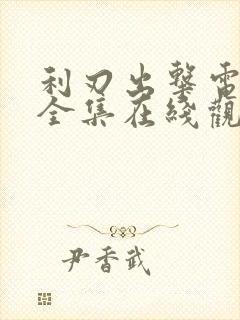 利刃出擊電
全集在綫觀
尹香武